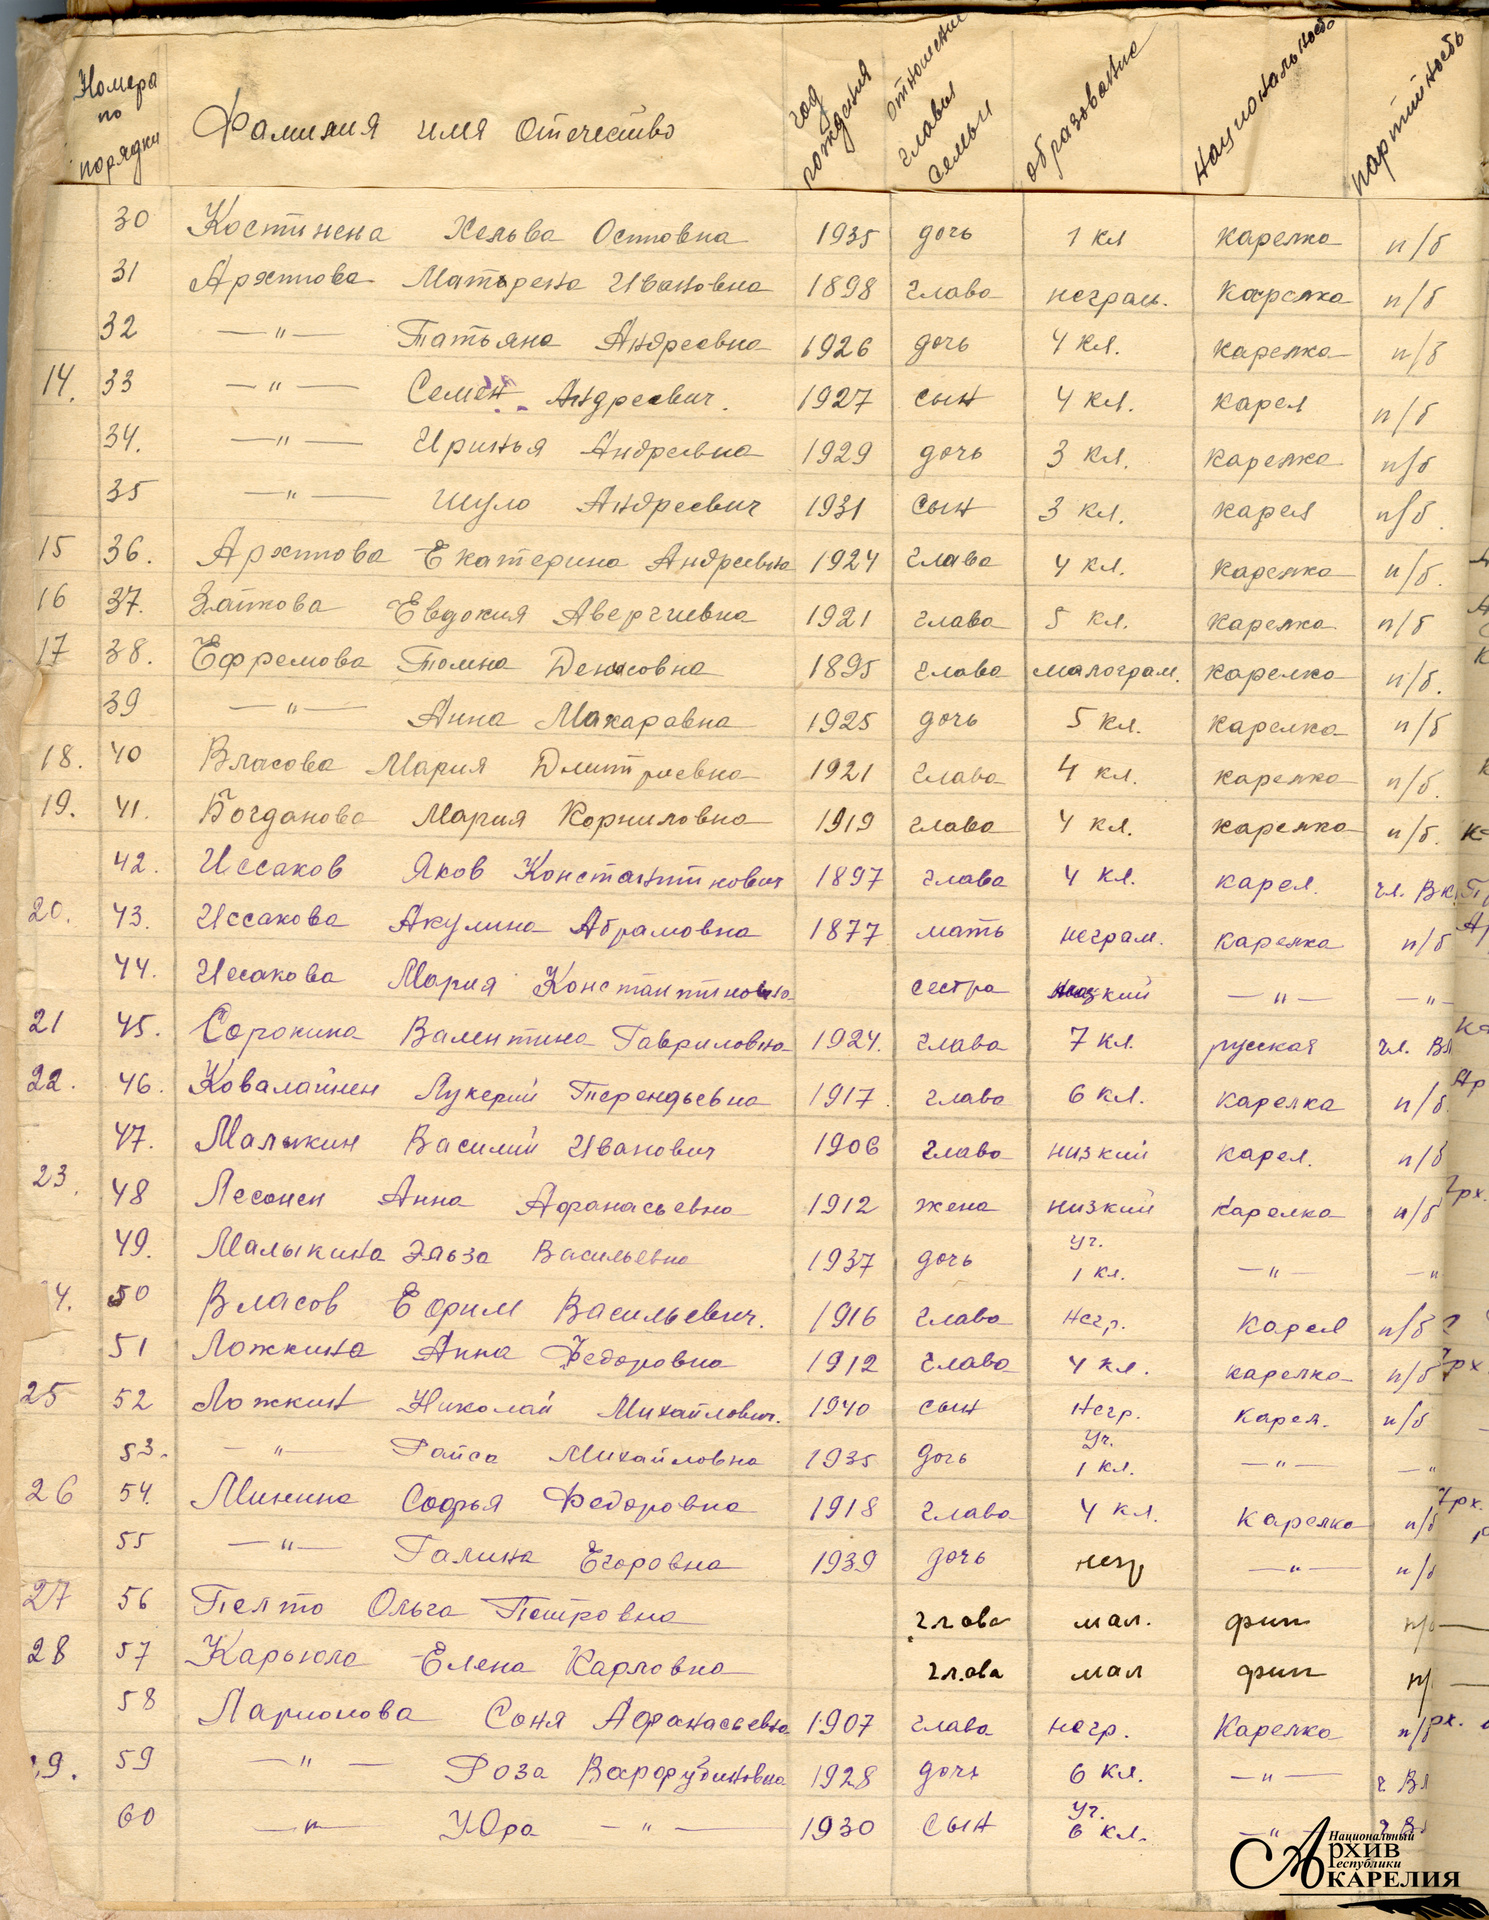 Номера по порядки Фамилия имя отечество год рождения отношение главы семьи образование национальность партийность
30 Костинена Хельва Остовна 1935 дочь 1 кл карелка п/б
31 Архипова Матьрена Ивановна 1898 глава неграм. карелка п/б
32 —"— Татьяна Андреевна 1926 дочь 4 кл. карелка п/б
14. 33 —"— Семён Андреевич. 1927 сын 4 кл. карел п/б
34. —"— Иринья Андреевна 1929 дочь 3 кл. карелка п/б
35 —"— Шуло Андреевич 1931 сын 3 кл. карел п/б.
15 36. Архипова Екатерина Андреевна 1924 глава 4 кл. карелка п/б.
16 37. Зайкова Евдокия Авергиевна 1921 глава 5 кл. карелка п/б
17 38. Ефремова Денисовна 1895 глава малограм. карелка п/б.
39 —"— Анна Макаравна 1925 дочь 5 кл. карелка п/б
18. 40 Власова Мария Дмитриевна 1921 глава 4 кл. карелка п/б.
19. 41. Богданова Мария Корниловна 1919 глава 4 кл. карелка п/б.
42. Иссаков Яков Константинович 1897 глава 4 кл. карел. чл. ВК
20. 43. Иссакова Акулина Абрамовна 1877 мать неграм. карелка п/б
44. Иссакова Мария Константиновна сестра низкий —"— —"—
21 45. Сорокина Валентина Гавриловна 1924. глава 7 кл. русская чл. ВЛ
22. 46. Ковалайнен Лукерий Терендьевна 1917. глава 6 кл. карелка п/б.
47. Малыкин Василий Иванович 1906 глава низкий карел. п/б
23. 48 Лесонен Анна Афанасьевна 1912 жена низкий карелка п/б
49. Малыкина Эльза Васильевна 1937 дочь уч. 1 кл. —"— —"
4. 50 Власов Ефрим Васильевич. 1916 глава негр. Карел п/б
51 Ложкина Анна Федоровна 1912 глава 4 кл. карелка п/б
25 52 Ложкин Николай Михайлович. 1940 сын негр. карел. п/б
53. —"— Райса Михайловна 1935 дочь уч. 1 кл. —"— —"
26 54. Минина Софья Федоровна 1918 глава 4 кл. карелка п/б
55 —"— Галина Егоровна 1939 дочь негр —"— п/б
27 56 Пелто Ольга Петровна глава мал. фин п/б
28 57 Карьюла Елена Карловна глава мал фин п/
58 Ларионова Соня Афанасьевна 1907 глава негр. Карелка п/б
9. 59 —"— Роза 1928 дочь 6 кл. —"— ч. ВЛ
60 —"— Юра —"— 1930 сын уч. 6 кл. —"— ч. ВЛ
Национальный
Архив
Республики
КАРЕЛИЯ